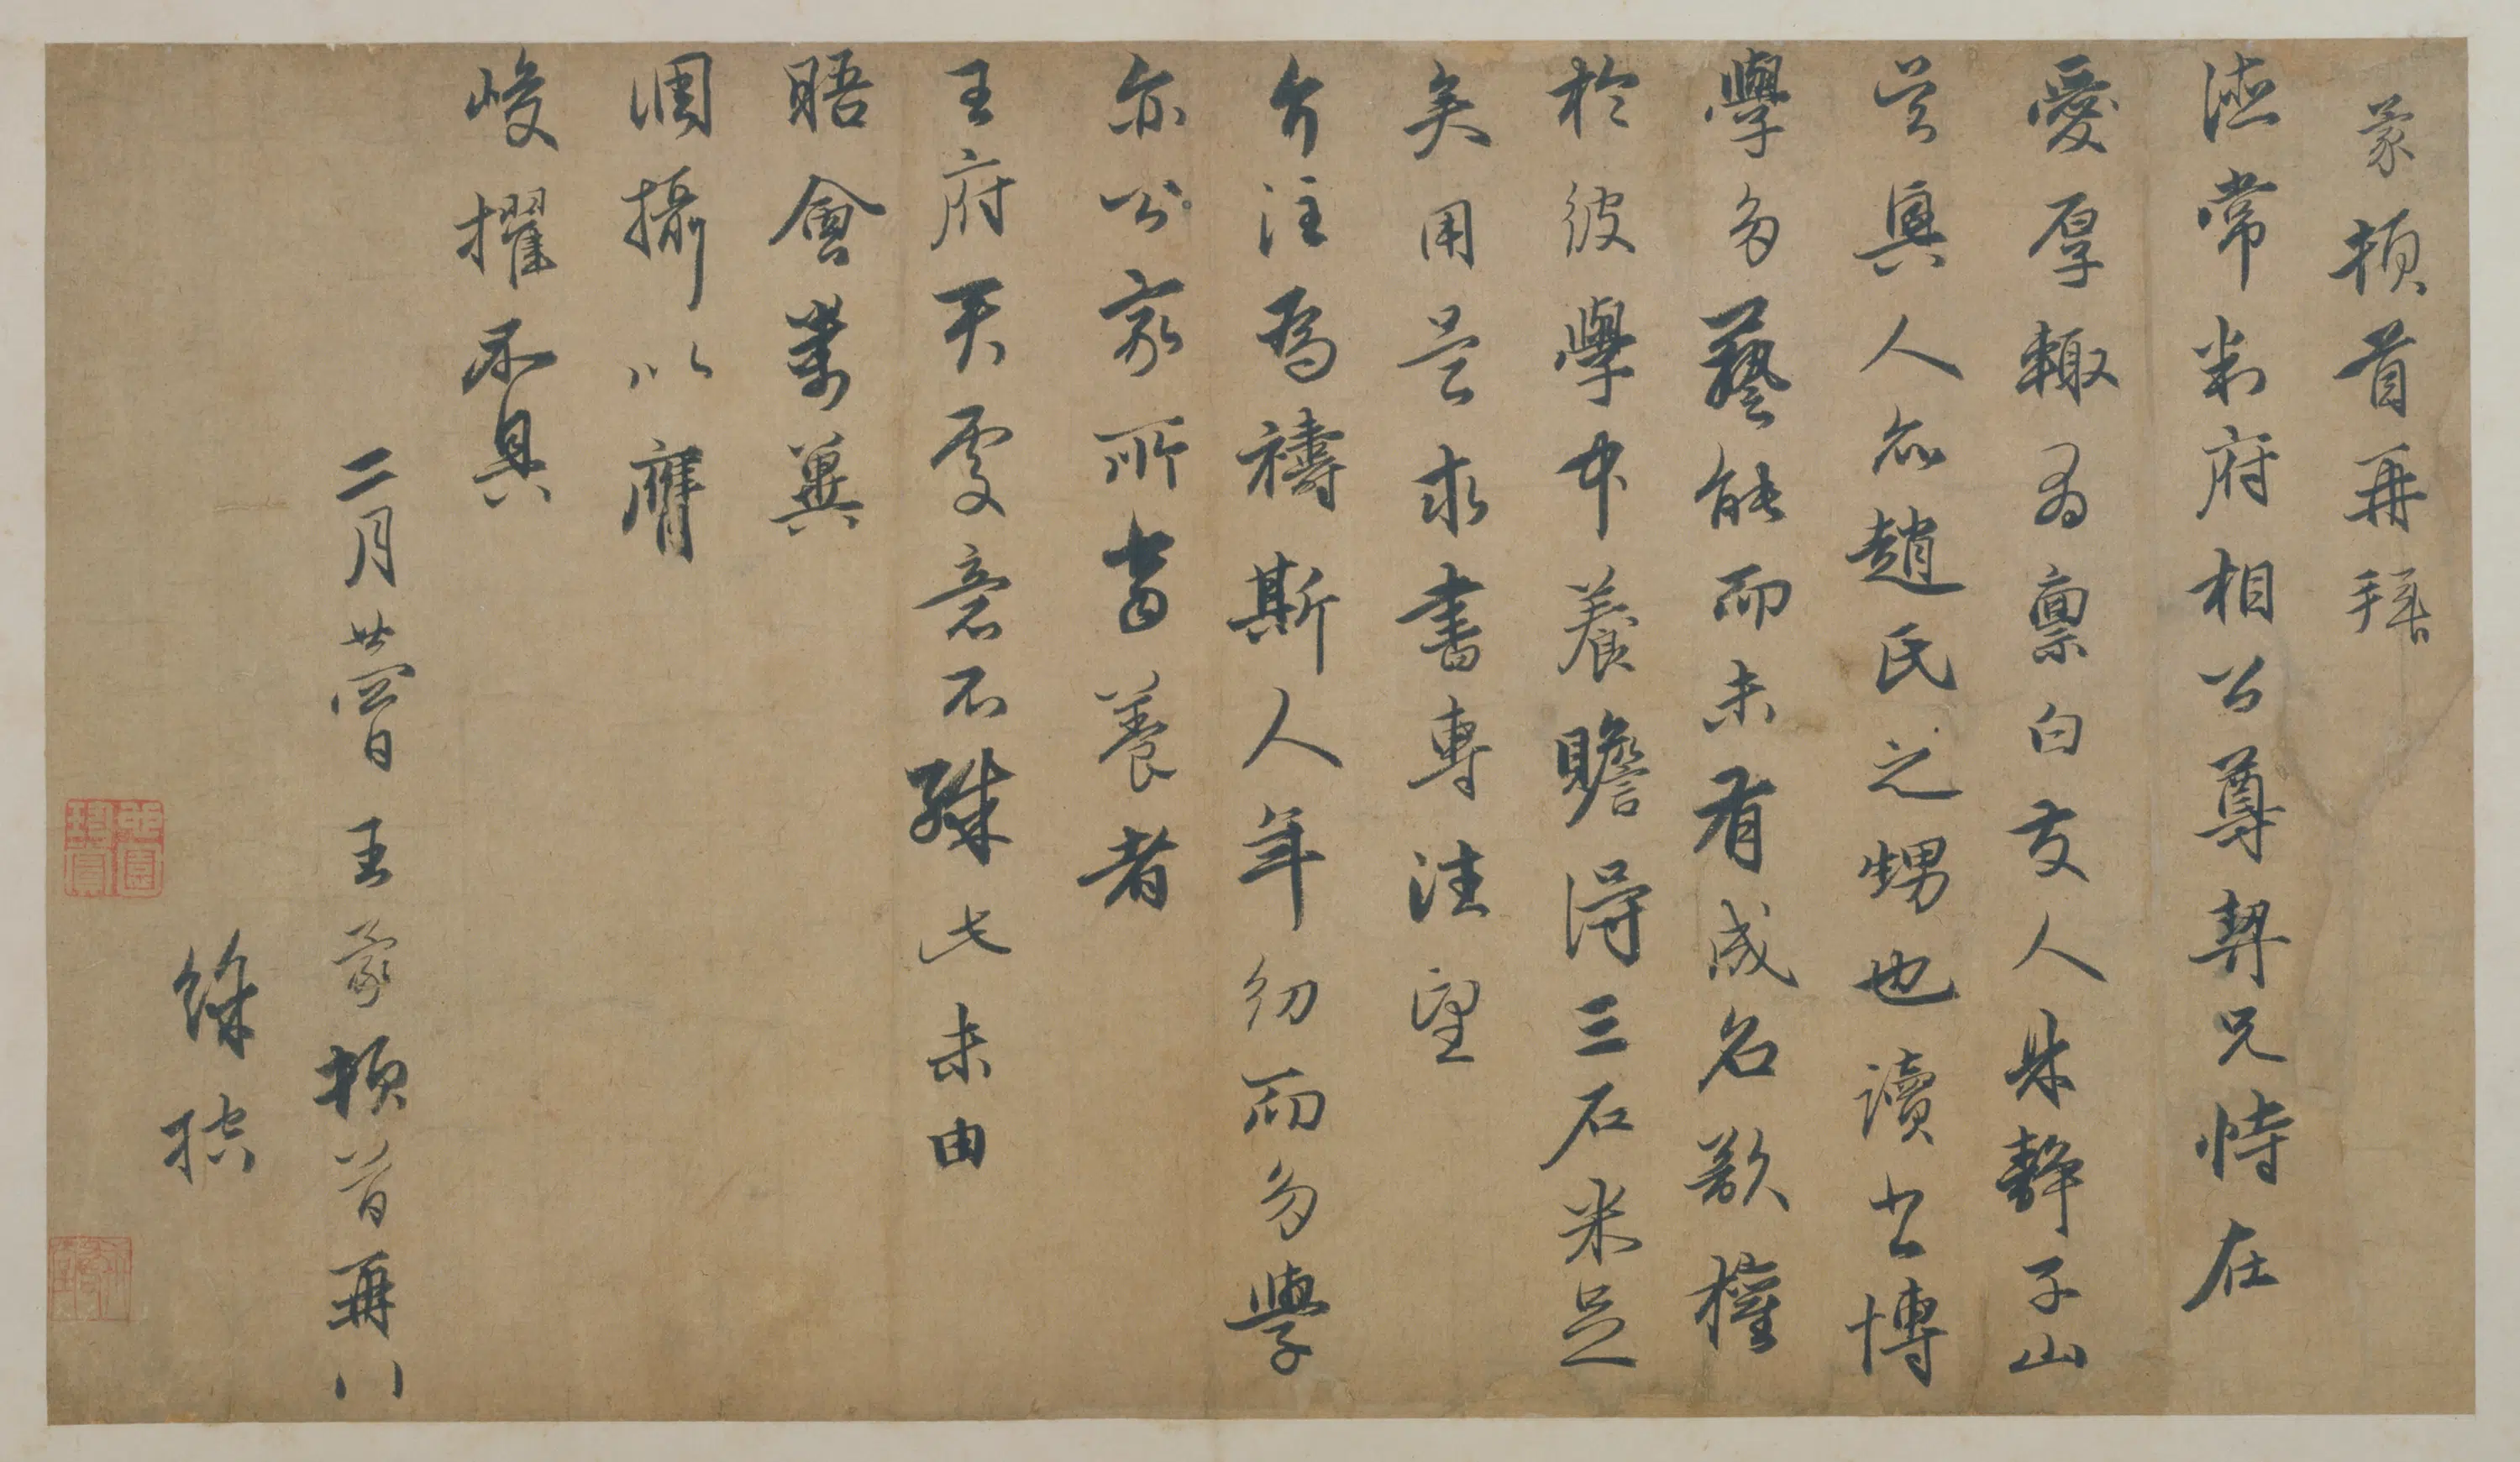 蒙頓首再拜
德常判府相公尊契兄侍在
愛厚輒有禀白友人朱靜子山
其人亦趙氏之甥也讀書博
學多藝能而未有成名欲權
於彼學中養贍得三石米足
矣用是求書專注望
介注為禱斯人年幼而多學
亦公家所當養者
王府天處意不殊此未由
晤會萬冀
調攝以膺
峻擢不具
二月廿四日王蒙頓首再
徐